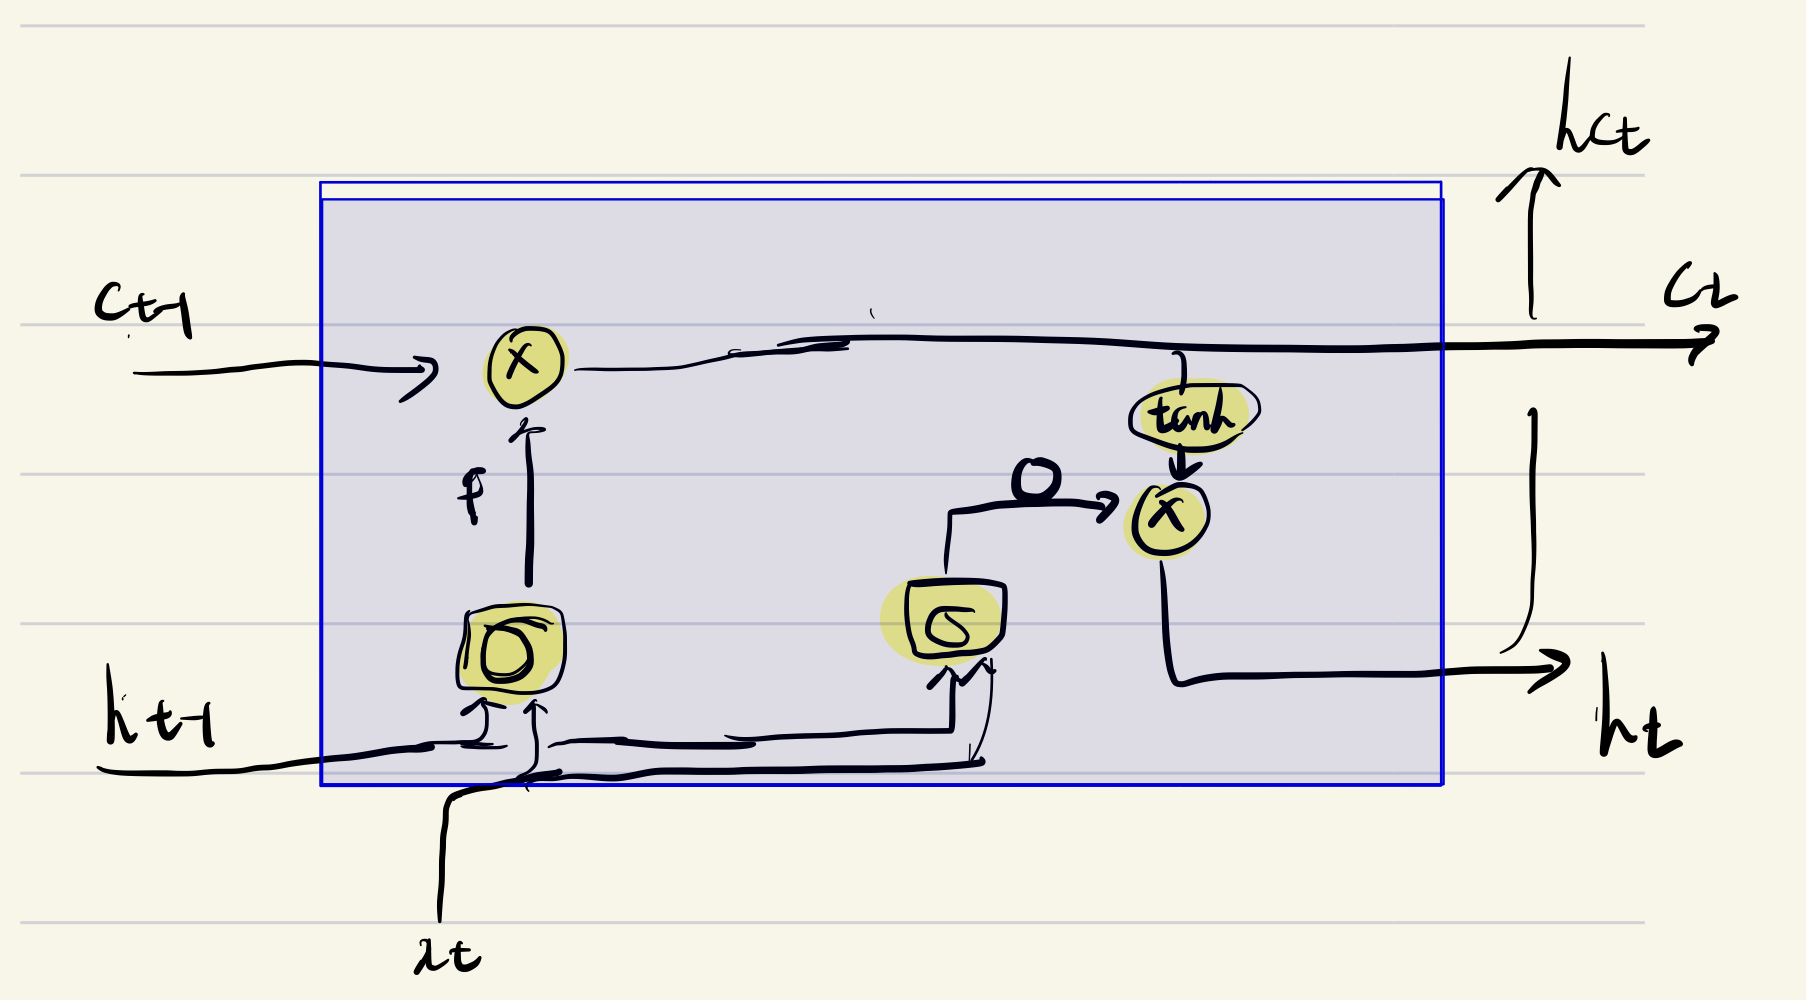 hct
ct
ct-1
x
tanh
f
o
x
σ
σ
ht-1
ht
xt